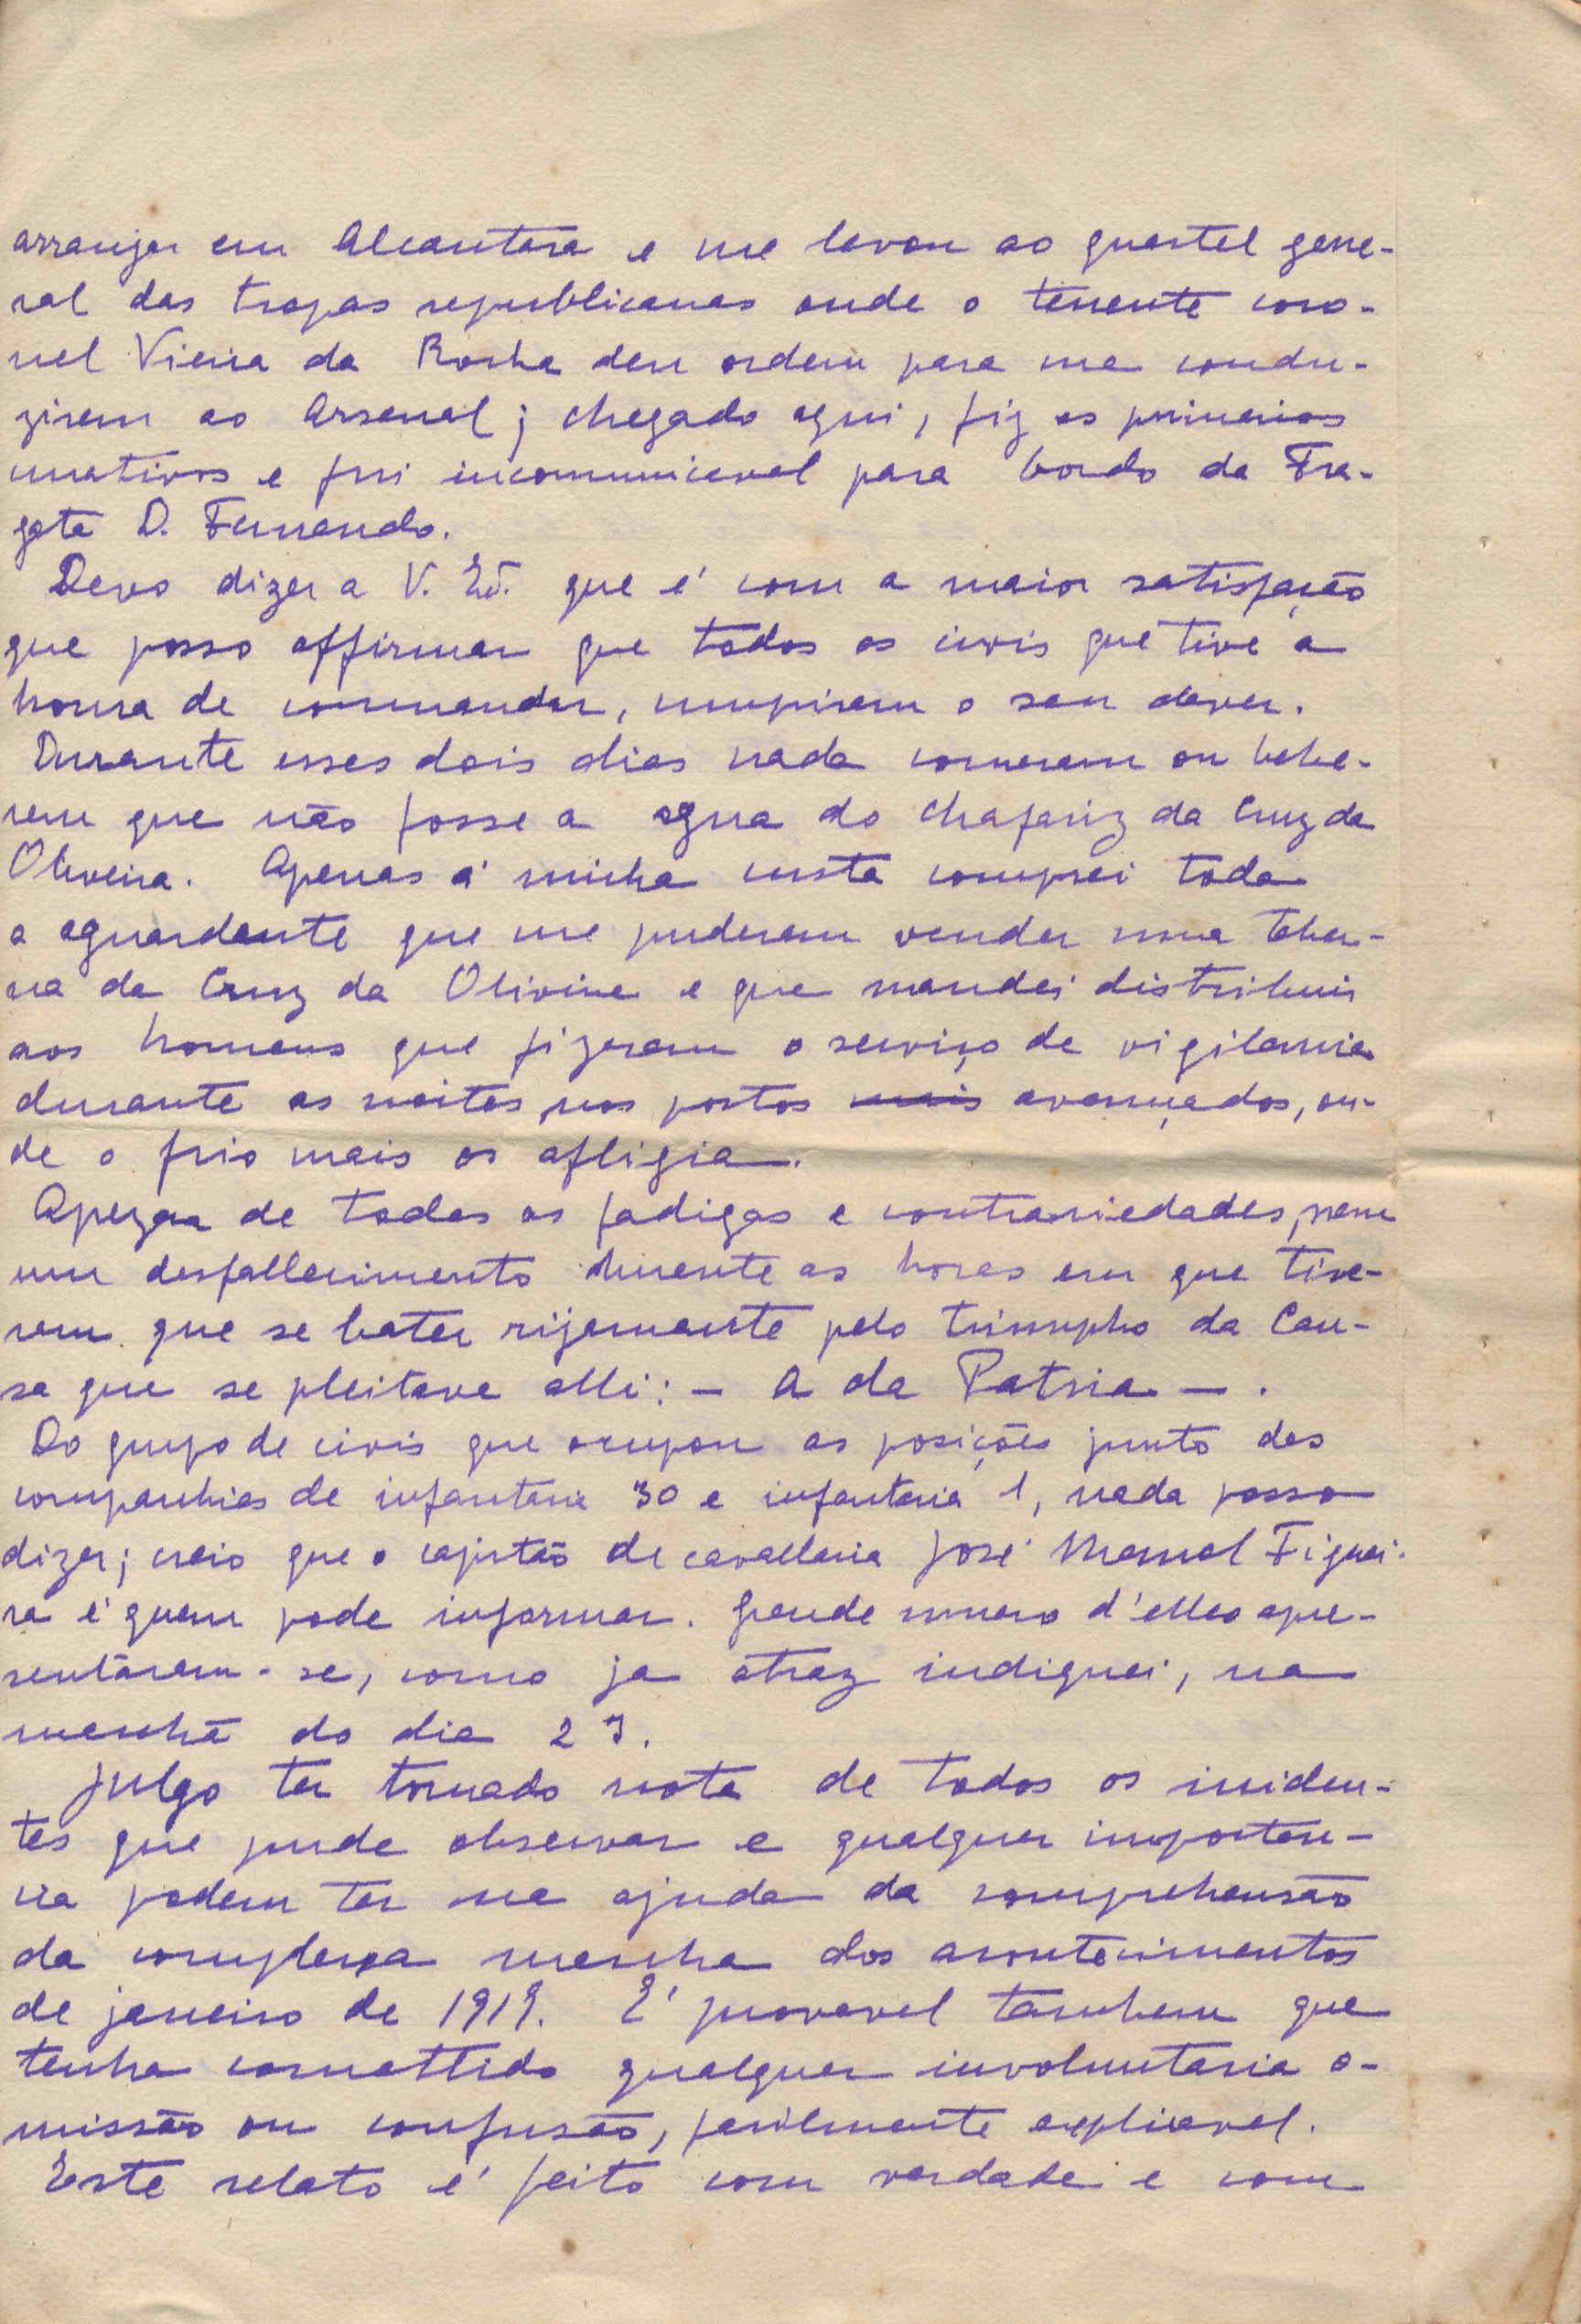 arranjar em Alcantara e me levou ao quartel gene-
ral das tropas republicanas onde o tenente coro-
nel Vieira da Rocha deu ordem para me condu-
zirem ao Arsenal; chegado aqui, fiz os primeiros
curativos e fui incomunicavel para bordo da Fra-
gata D. Fernando.
Devo dizer a V. Ex.ª que é com a maior satisfação
que posso affirmar que todos os civis que tive a
honra de commandar, cumpriram o seu dever.
Durante esses dois dias nada comeram ou bebe-
ram que não fosse a agua do chafariz da Cruz da
Oliveira. Apenas á minha custa comprei toda
a aguardente que me puderam vender numa taber-
na da Cruz da Oliveira e que mandei distribuir
aos homens que fizeram o serviço de vigilancia
durante as noites, nos postos mais avançados, on-
de o frio mais os afligia.
Apezar de todas as fadigas e contrariedades, nem
um desfallecimento durante as horas em que tive-
ram que se bater rijamente pelo triumpho da Cau-
sa que se pleitava alli: - A da Patria - .
Do grupo de civis que occupou as posições junto das
companhias de infantaria 30 e infantaria 1, nada posso
dizer; creio que o capitão de cavallaria José Manoel Figuei-
ra é quem pode informar. Grande numero d'elles apre-
sentáram-se, como ja atraz indiquei, na
manhã do dia 23.
Julgo ter tomado nota de todos os inciden-
tes que pude observar e qualquer importan-
cia podem ter na ajuda da comprehensão
da complexa marcha dos acontecimentos
de janeiro de 1919. E' provavel tambem que
tenha comettido qualquer involuntaria o-
missão ou confusão, facilmente explicavel.
Este relato é feito com verdade e com